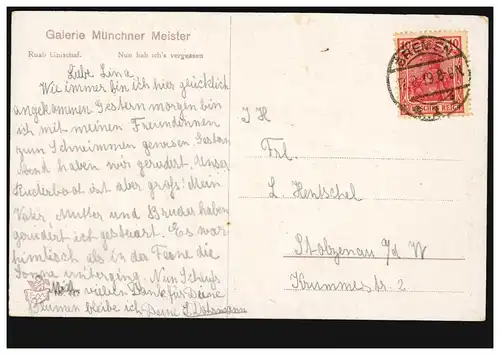 Galerie Münchner Meister
Nun hab ich's vergessen
Liebe Lina
Wie immer bin ich hier glücklich
angekommen Gestern morgen bin
ich mit meinen Freundinnen
zum Schwimmen gewesen Gestern
Abend haben wir gerudert. Unser
Ruderboot ist aber groß! Mein
Vater, Mutter und Bruder haben
gerudert ich gesteuert. Es war
himmlisch als in der Ferne die
Sonne unterging. Nun Schluß
Mit vielen Dank für Deine
Blumen bleibe ich Deine
BREMEN
10
DEUTSCHES REICH
I H
Frl.
L. Hentschel
Stolzenau a/d W
Krummestr. 2